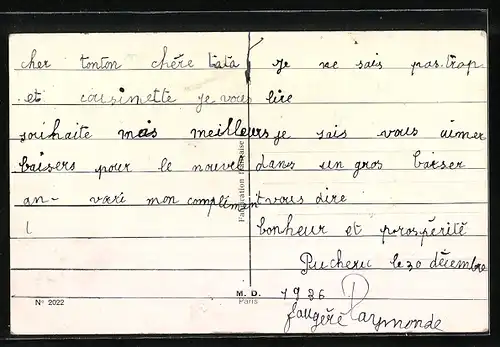 cher tonton chère tata
et cousinette je vous
souhaite mais meilleurs
baisers pour le nouvel
an - vœri mon complément
Je ne sais pas trop
lire
je sais vous aimer
dans un gros baiser
vous dire
bonheur et porospérité
Pucheru le 30 décembre
1936
faugère Raymonde
Fabrication française
M. D.
Paris
No 2022